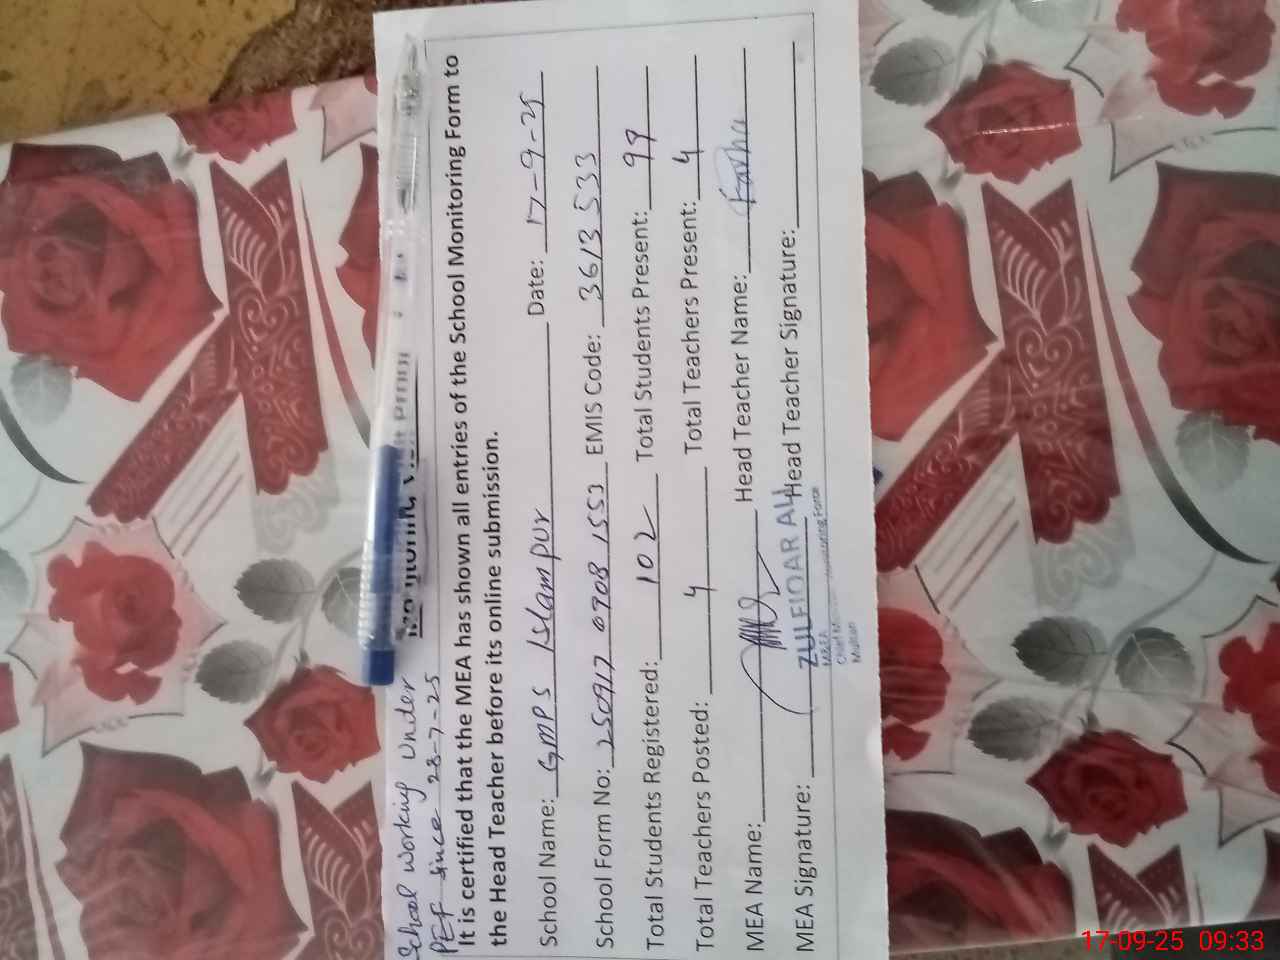 School working Under
PEF since 28-7-25
It is certified that the MEA has shown all entries of the School Monitoring Form to
the Head Teacher before its online submission.
School Name: GMPS Islampur Date: 17-9-25
School Form No: 250917 0708 1553 EMIS Code: 3613533
Total Students Registered: 102 Total Students Present: 99
Total Teachers Posted: 4 Total Teachers Present: 4
MEA Name: Head Teacher Name: Farha
MEA Signature: Head Teacher Signature:
ZULFIQAR ALI
M&EA
Chief Monitoring Force
Multan
17-09-25 09:33